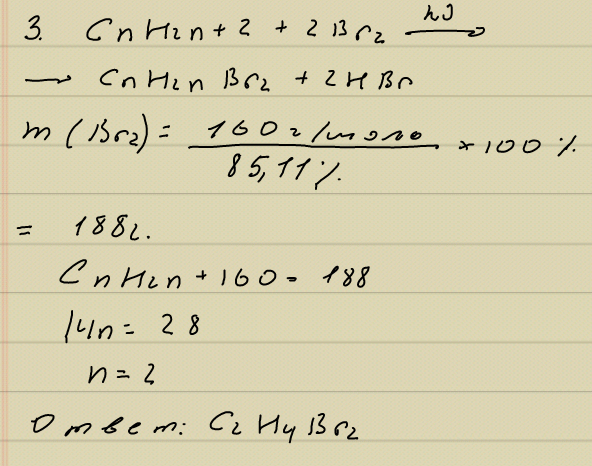 3. CnH2n+2 + 2Br2 hν→
→ CnH2nBr2 + 2HBr
m(Br2) = 160г/моль / 85,11% * 100%
= 188г.
CnH2n + 160 = 188
14n = 28
n = 2
Ответ: C2H4Br2